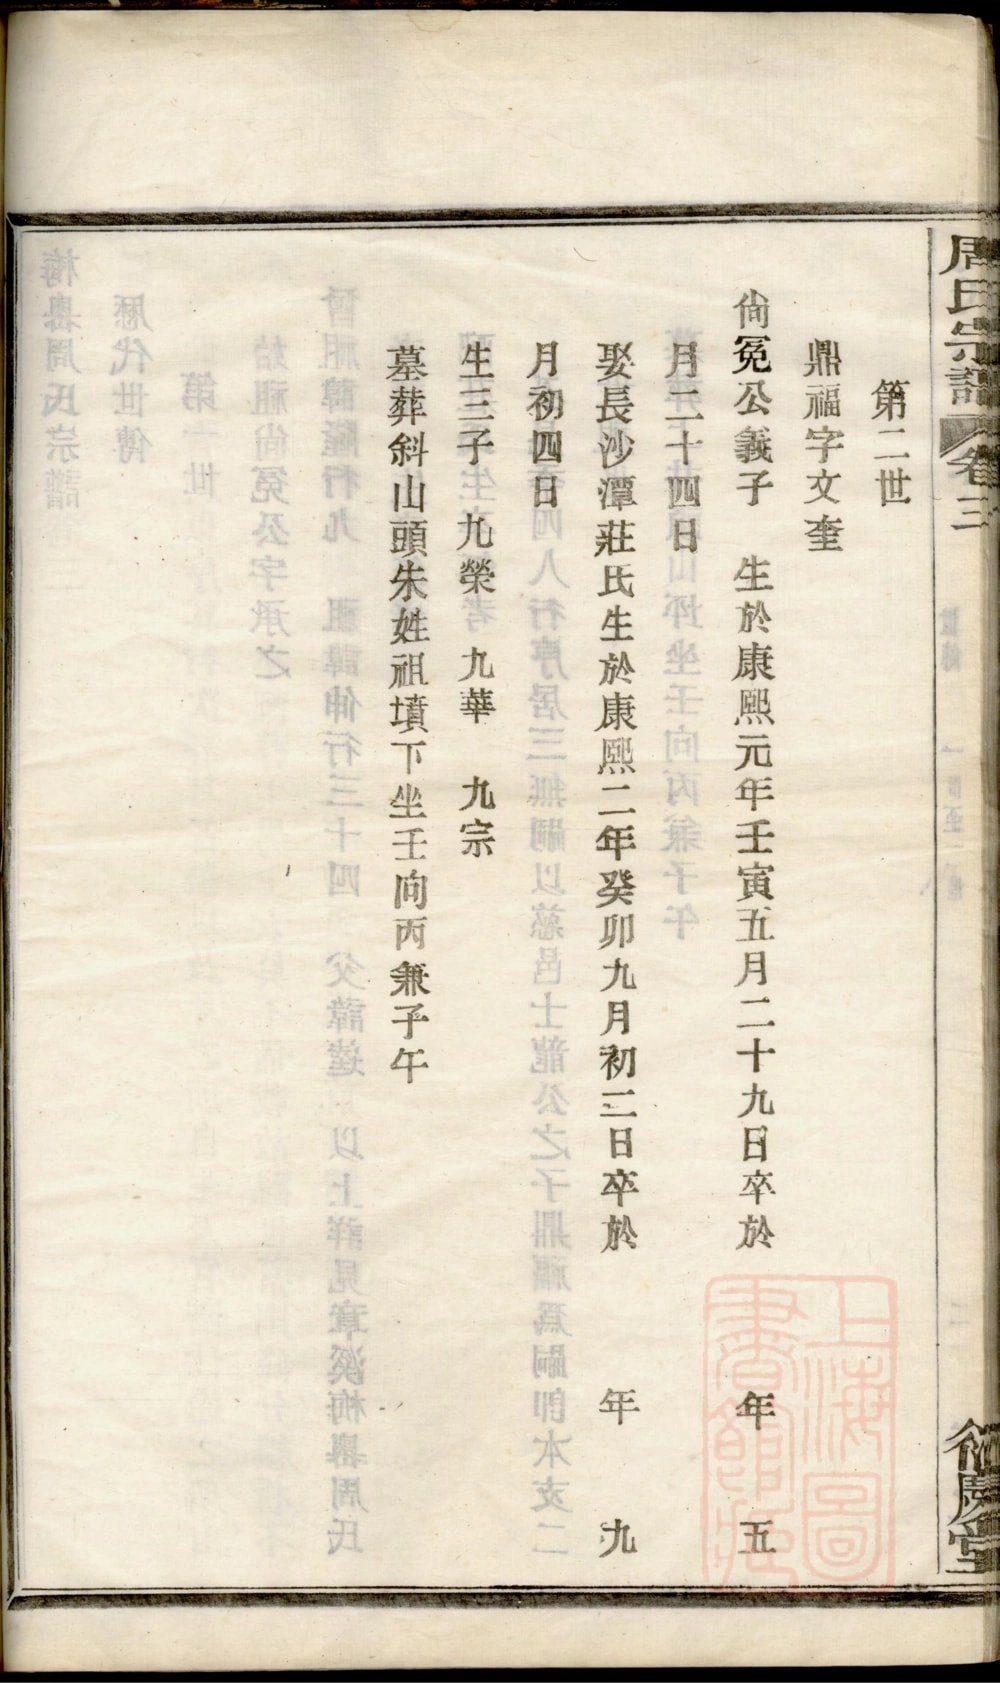 周氏宗譜 卷三
第二世
鼎福字文奎
尙冕公義子 生於康熙元年壬寅五月二十九日卒於 年 五
月二十四日
娶長沙潭莊氏生於康熙二年癸卯九月初二日卒於 年 九
月初四日
生三子九榮 九華 九宗
墓葬斜山頭朱姓祖墳下坐壬向丙兼子午
慶堂
上海圖
書館藏